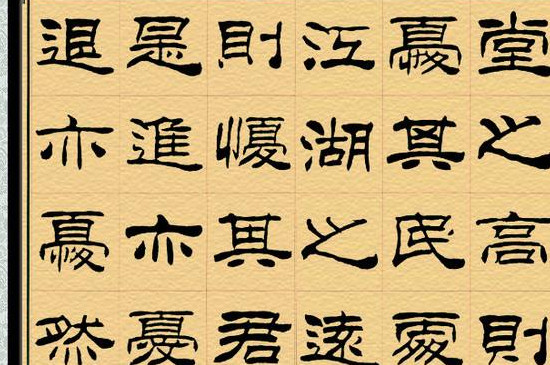 堂之高則
憂其民處
江湖之遠
則憂其君
是進亦憂
退亦憂然